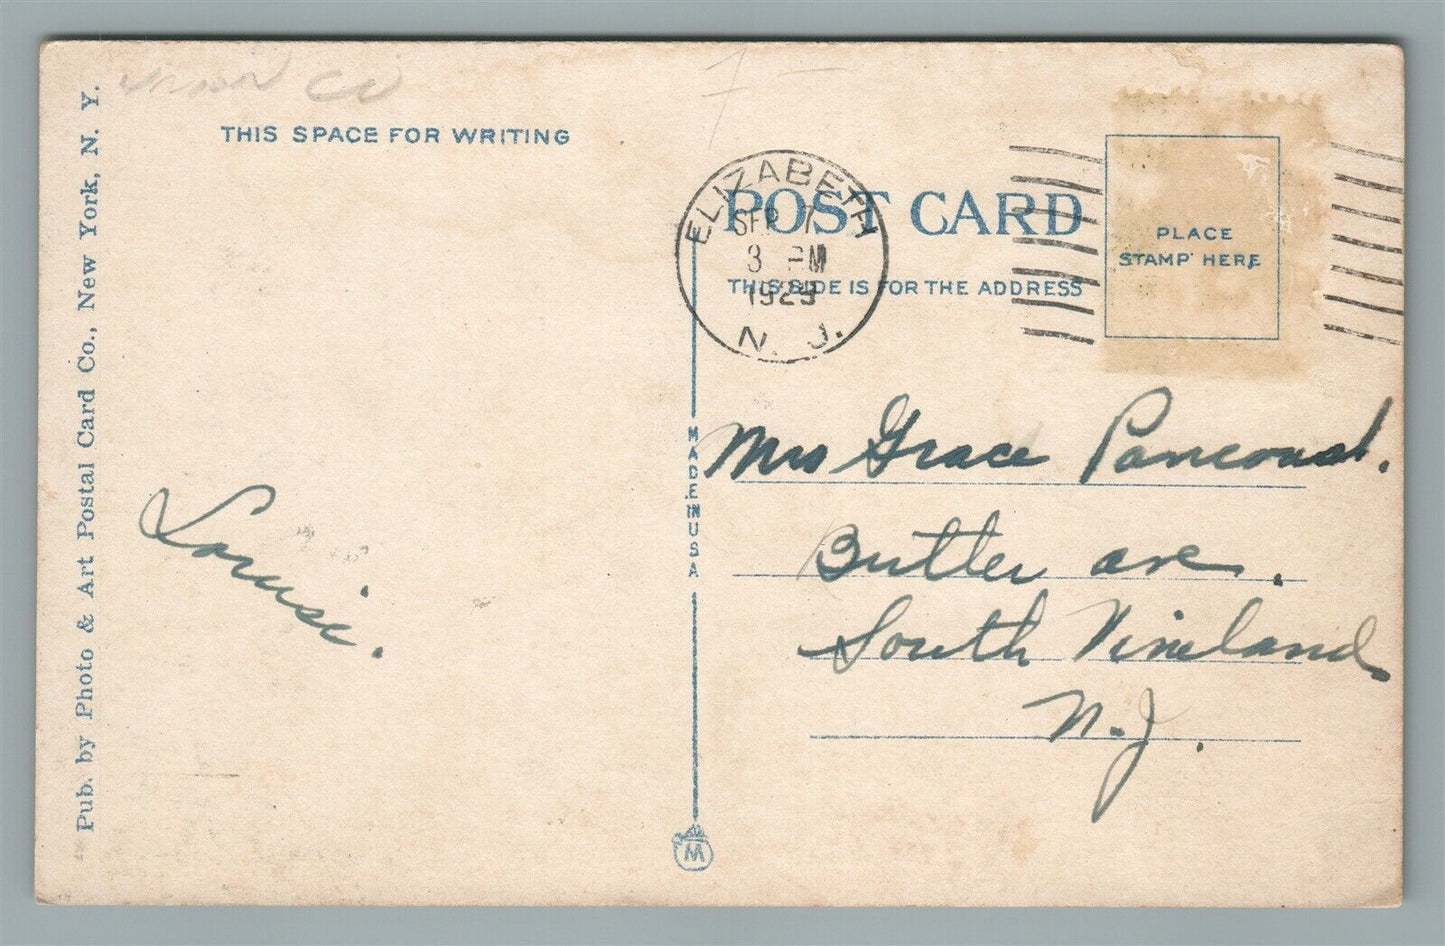 UNION CO
7 –
THIS SPACE FOR WRITING
Pub. by Photo & Art Postal Card Co., New York, N. Y.
ELIZABETH
SEP 7
3 PM
1929
N. J.
POST CARD
THIS SIDE IS FOR THE ADDRESS
PLACE
STAMP HERE
MADE IN USA
Mrs Grace Pancoast.
Butler ave.
South Vineland
N.J.
Louise.
M